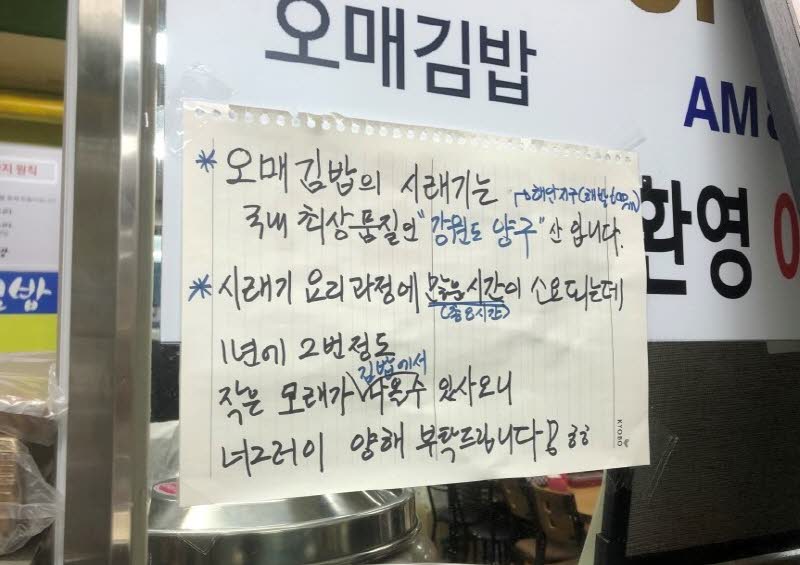 오매김밥
AM
환영
* 오매김밥의 시래기는
→해안지구(해발600m)
국내 최상품질인 "강원도 양구" 산 입니다.
* 시래기 요리과정에 많은시간이 소요되는데
(총8시간)
1년에 2번정도
김밥에서
작은 모래가 나올수 있사오니
너그러이 양해 부탁드립니다 꽁 ㅎㅎ
KTOBO